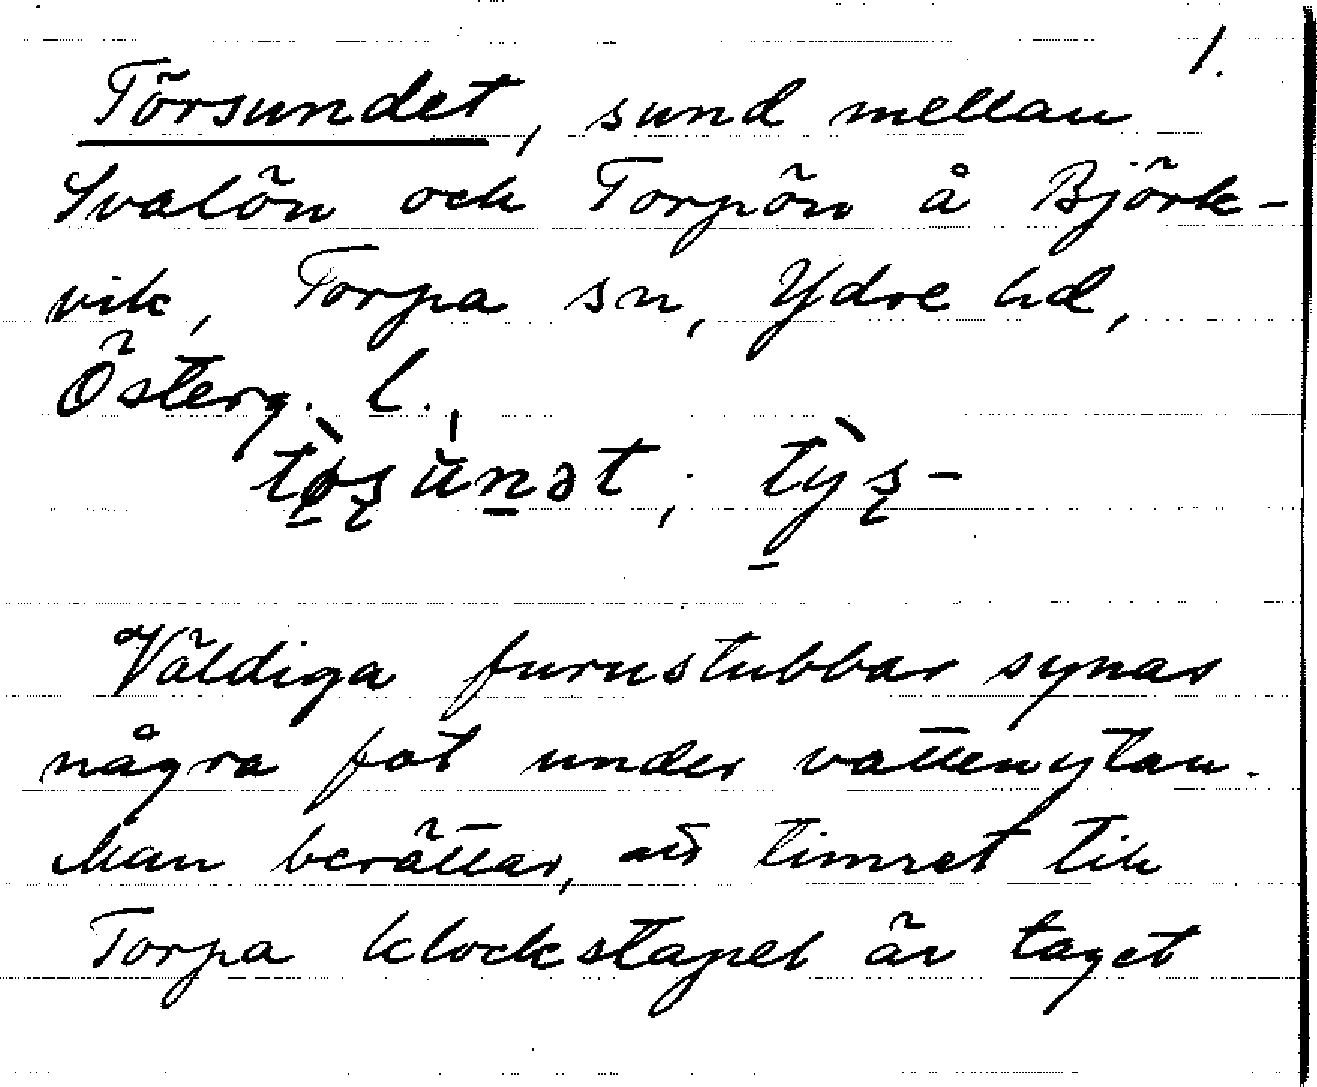 1.
Törsundet, sund mellan
Svalön och Torpön å Björk-
vik, Torpa sn, Ydre hd,
Österg. l.
tø̀ʂùnət; tỳʂ-
Väldiga furustubbar synas
några fot under vattenytan.
Man berättar, att timret till
Torpa klockstapel är taget